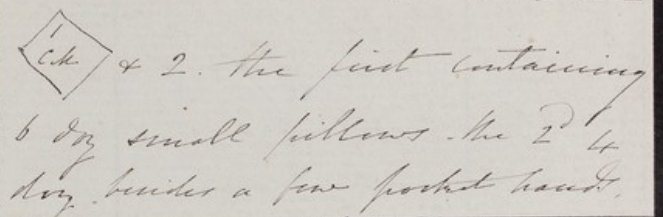 1 C.M. & 2. the first containing
6 doz small pillows. the 2d 4
doz. besides a few pocket handfs.